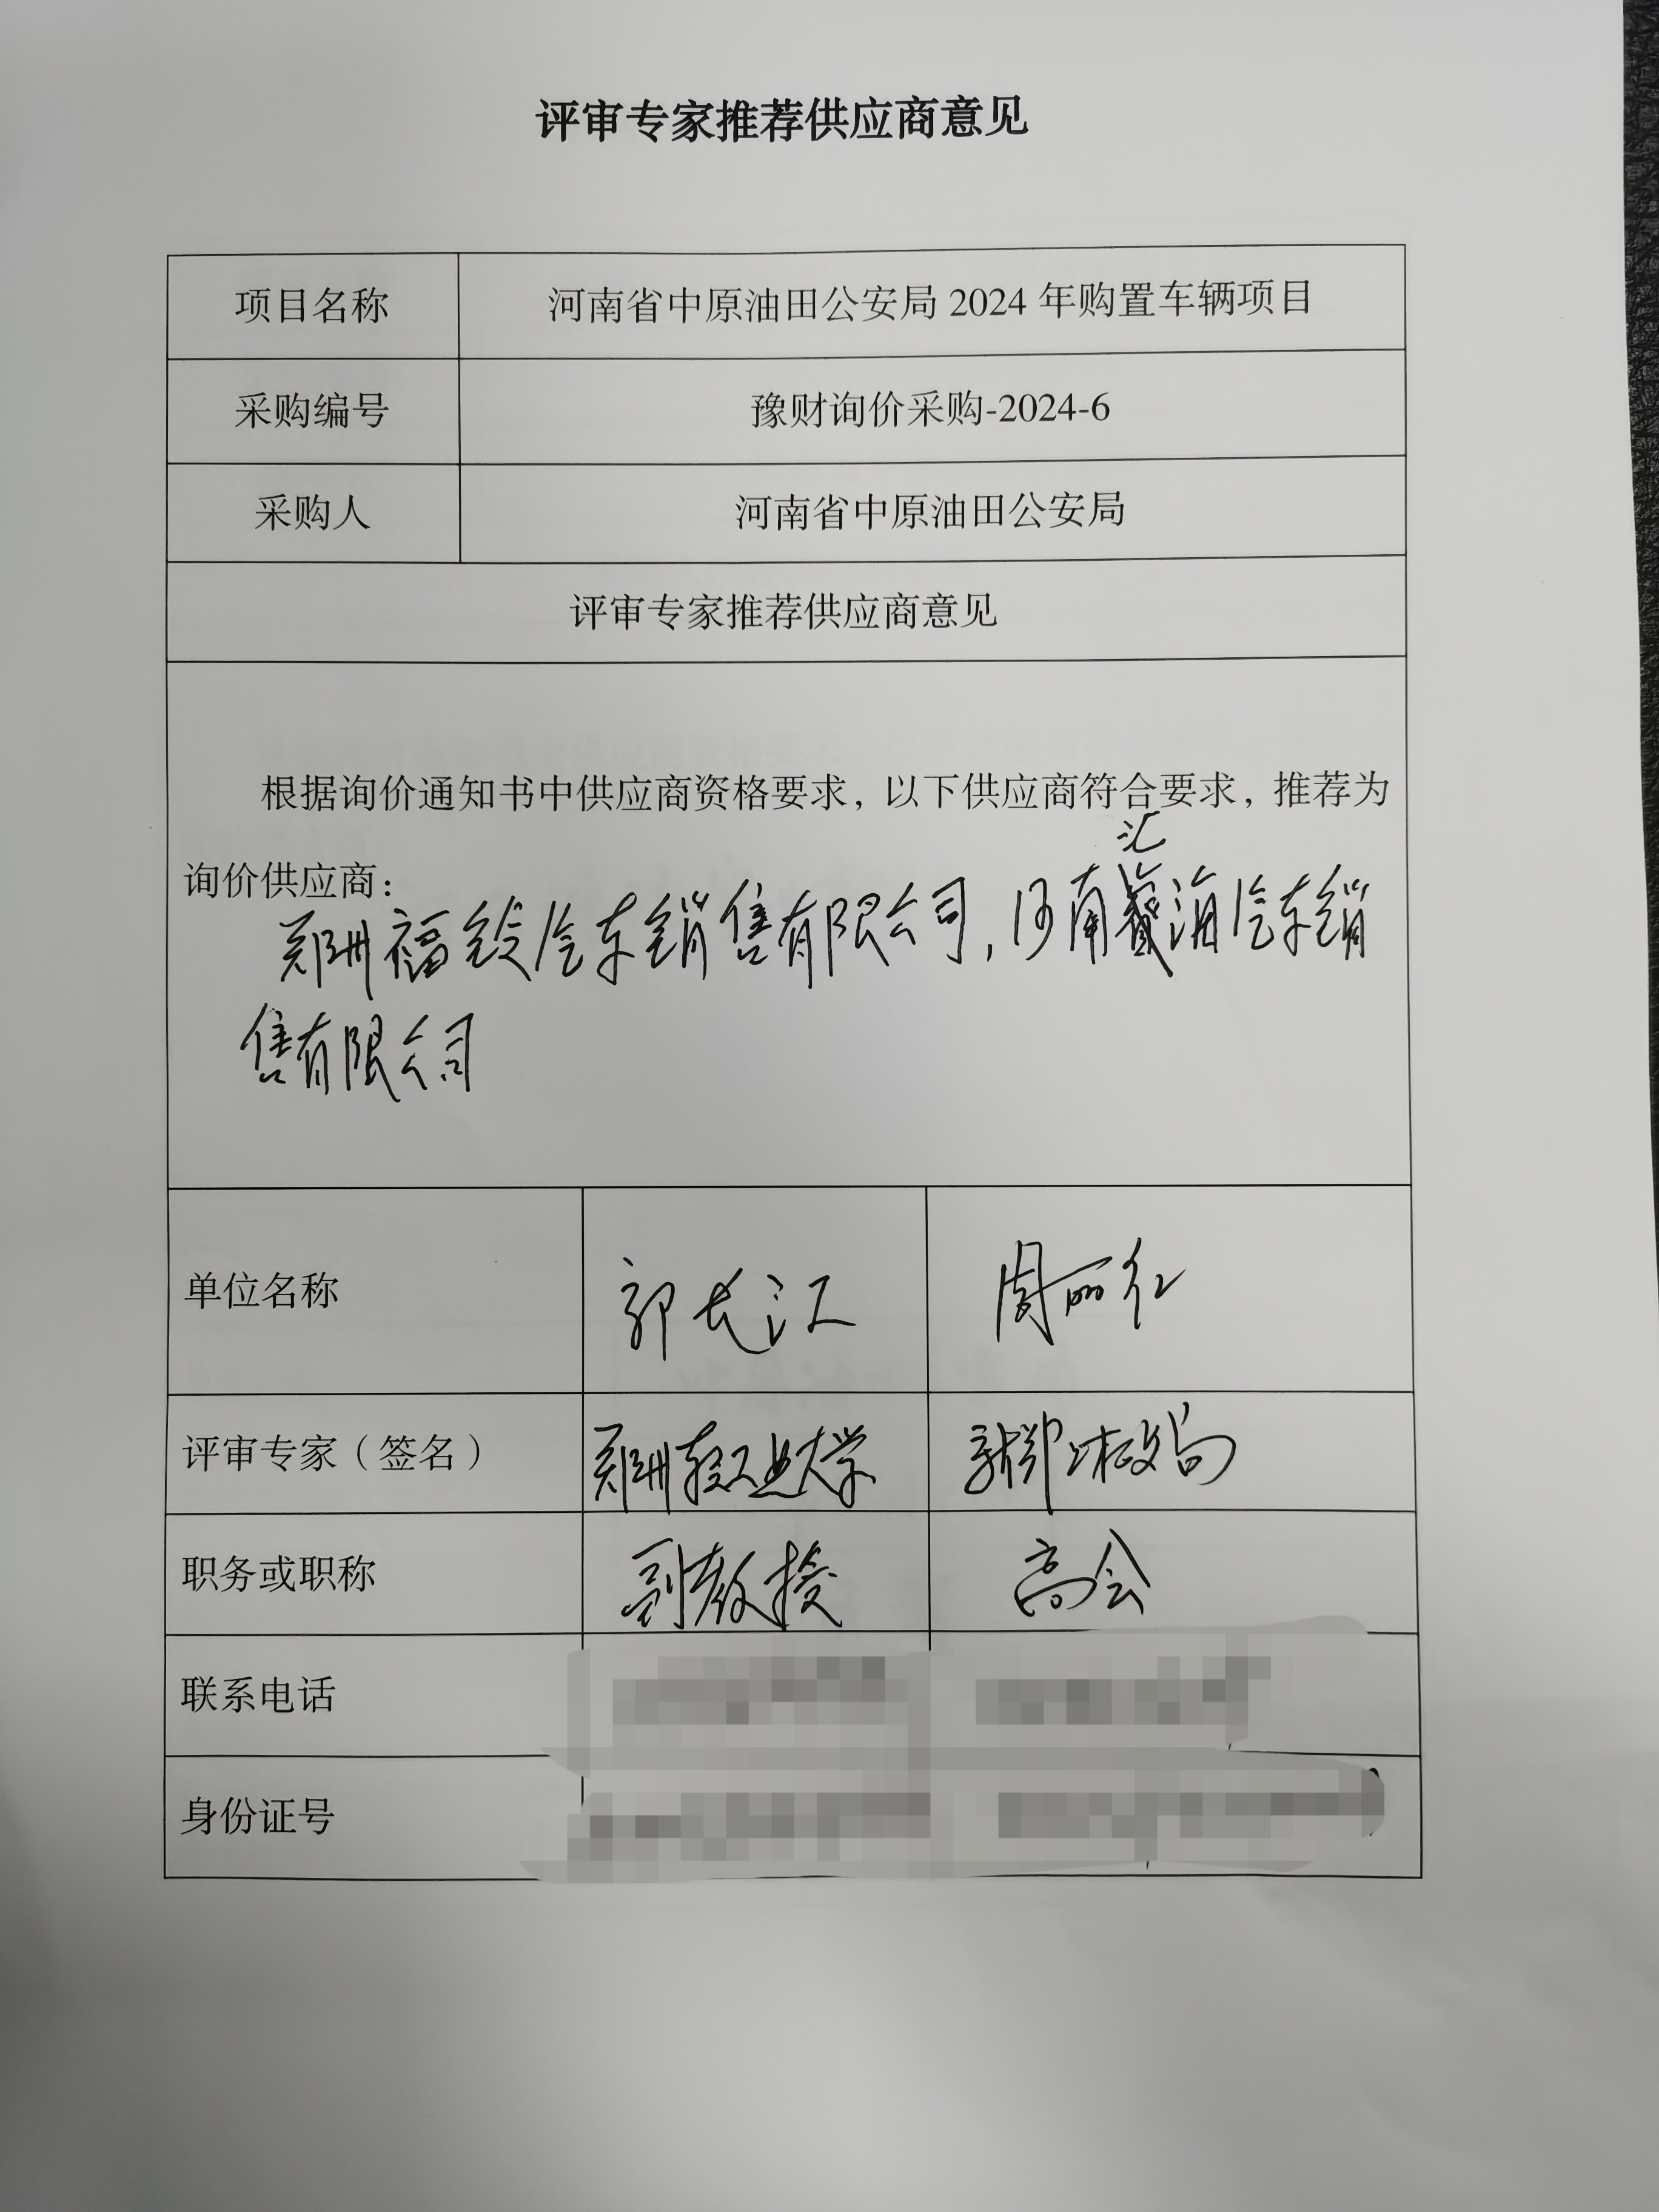 评审专家推荐供应商意见
项目名称 河南省中原油田公安局 2024 年购置车辆项目
采购编号 豫财询价采购-2024-6
采购人 河南省中原油田公安局
评审专家推荐供应商意见
根据询价通知书中供应商资格要求，以下供应商符合要求，推荐为
询价供应商：
汇
郑州福铃汽车销售有限公司，河南海汽车销
售有限公司
单位名称 郭长江 周丽红
评审专家（签名） 郑州轻工业大学 新郑财政局
职务或职称 副教授 高会
联系电话
身份证号